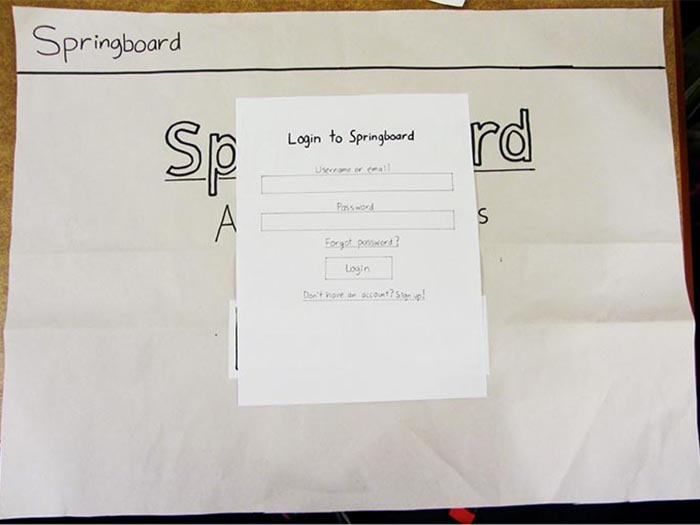 Springboard
Login to Springboard
Username or email
Password
Forgot password?
Login
Don't have an account? Sign up!
Sp
rd
A
s